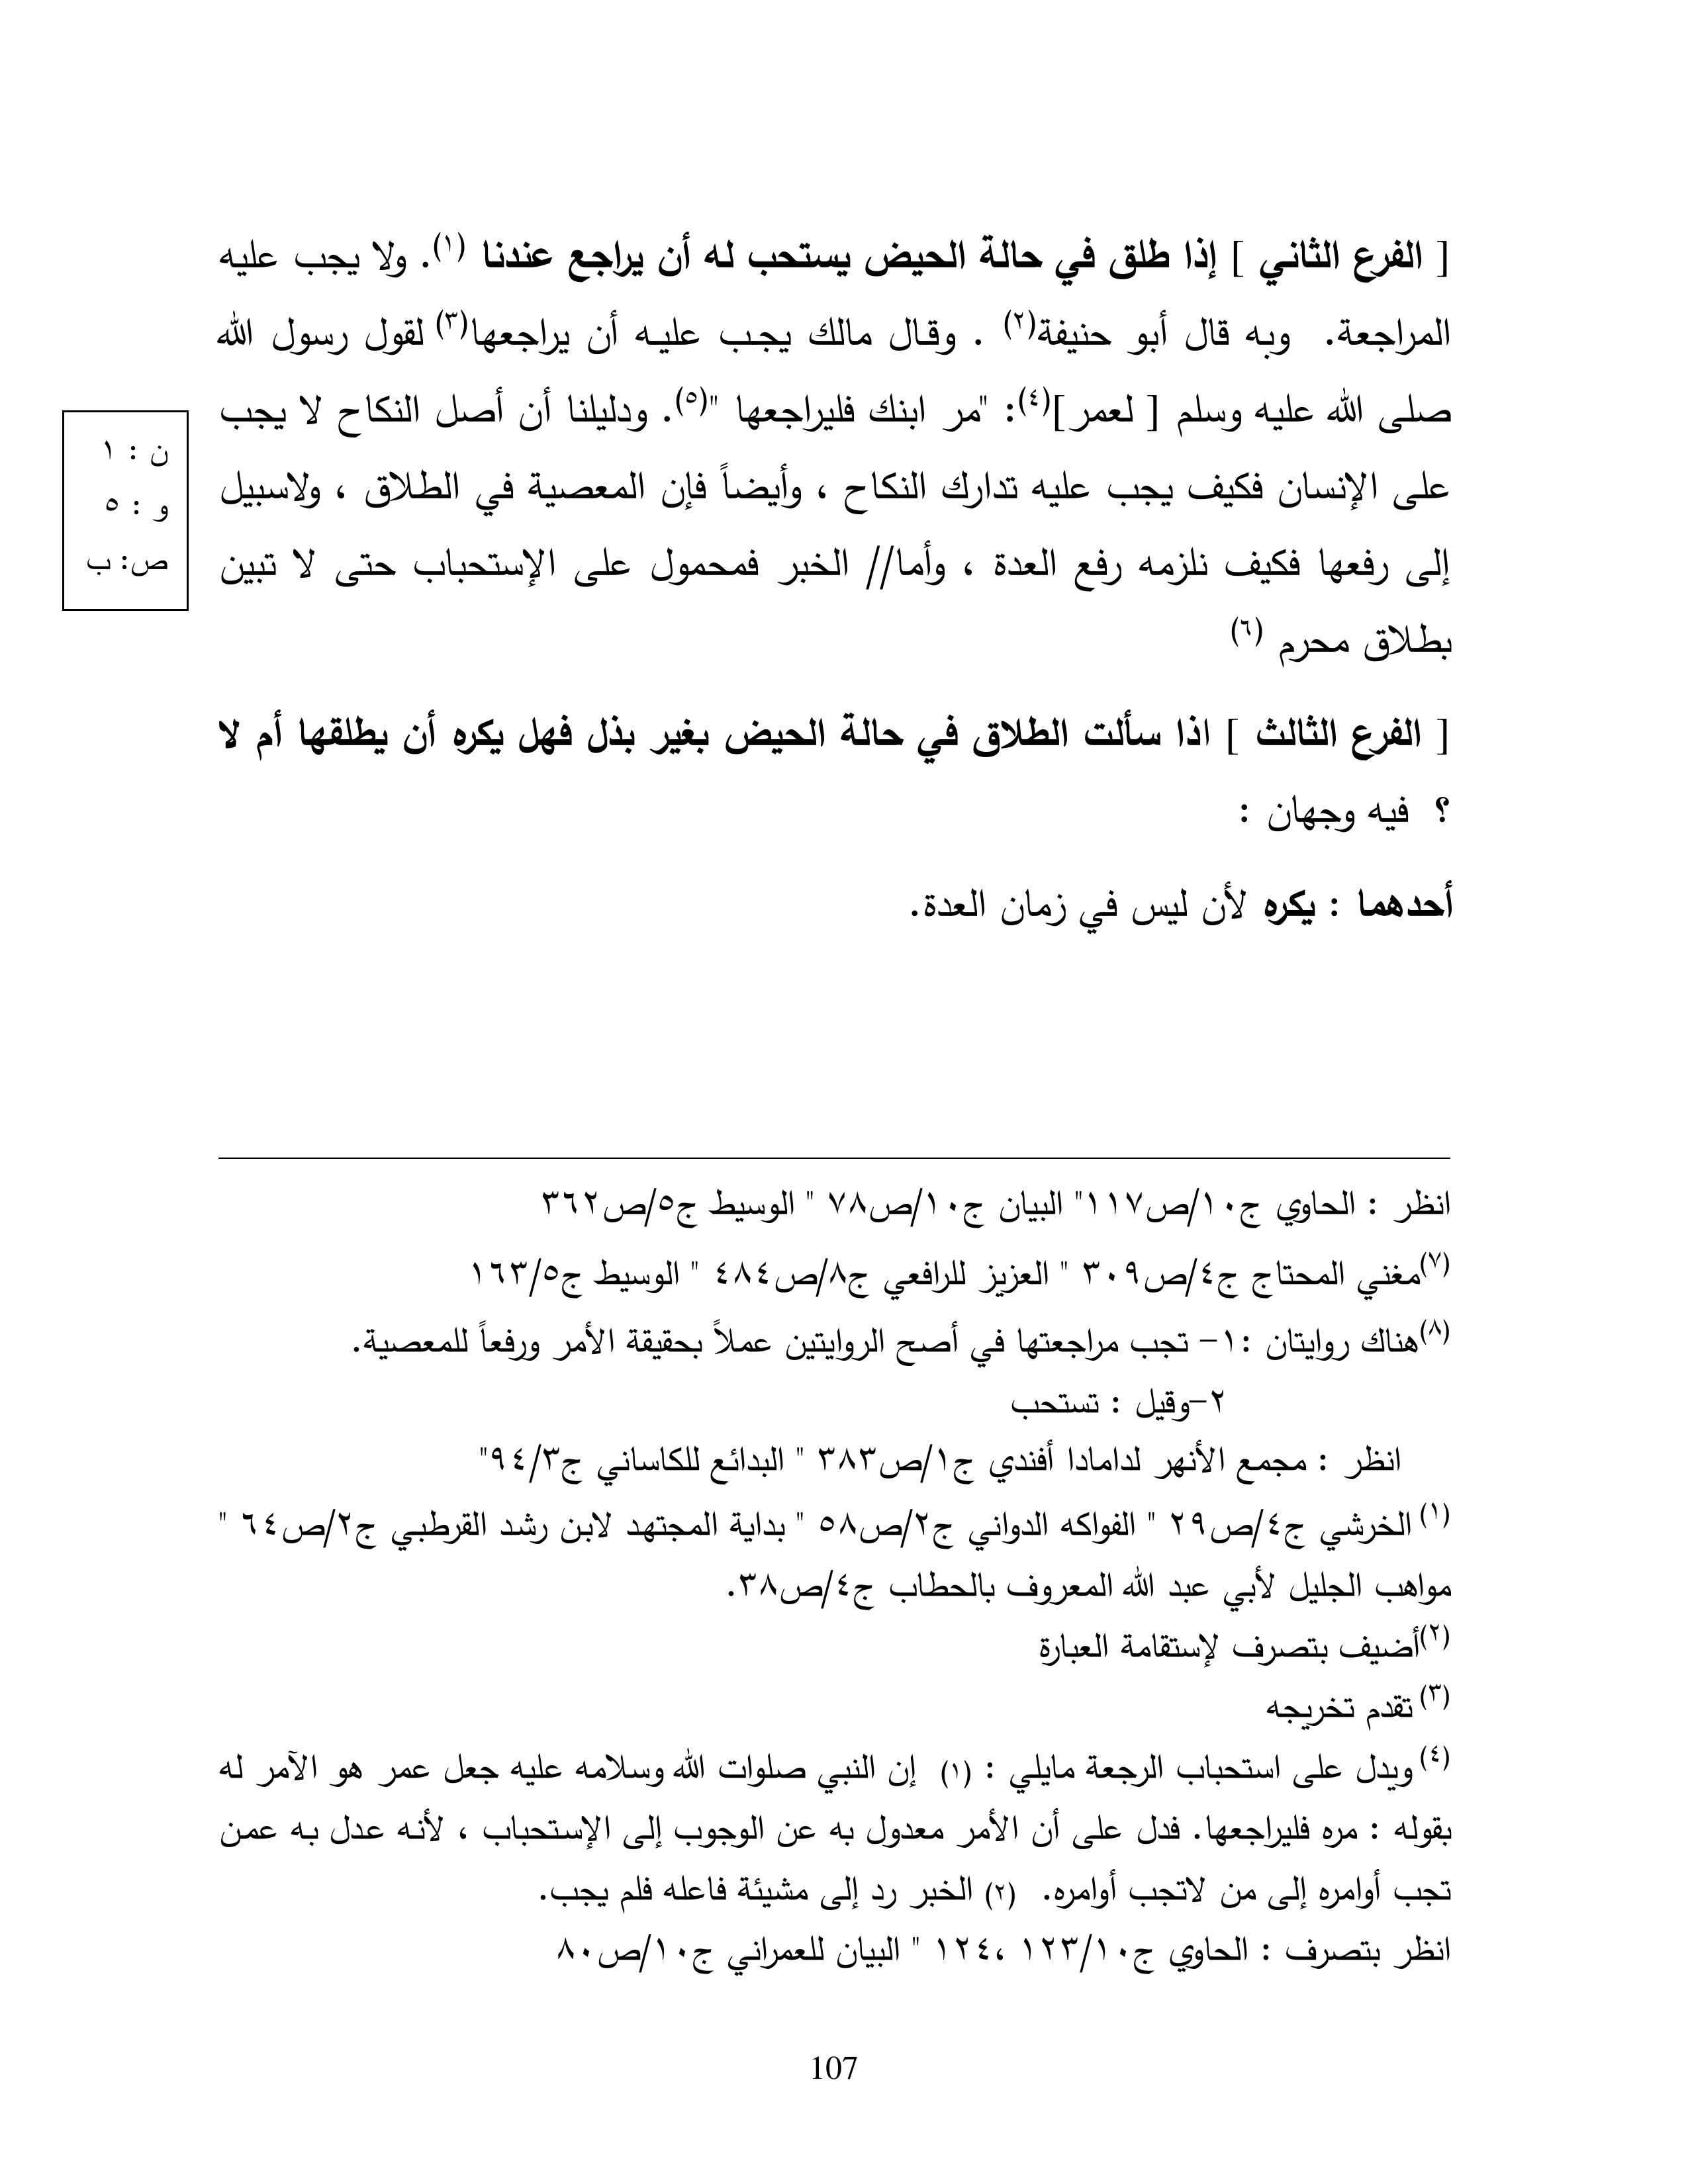 [ الفرع الثاني ] إذا طلق في حالة الحيض يستحب له أن يراجع عندنا (١). ولا يجب عليه
المراجعة. وبه قال أبو حنيفة(٢) . وقال مالك يجب عليه أن يراجعها(٣) لقول رسول الله
صلى الله عليه وسلم [ لعمر ](٤): "مر ابنك فليراجعها "(٥). ودليلنا أن أصل النكاح لا يجب
على الإنسان فكيف يجب عليه تدارك النكاح ، وأيضاً فإن المعصية في الطلاق ، ولاسبيل
إلى رفعها فكيف نلزمه رفع العدة ، وأما// الخبر فمحمول على الإستحباب حتى لا تبين
بطلاق محرم (٦)
ن : ١
و : ٥
ص: ب
[ الفرع الثالث ] اذا سألت الطلاق في حالة الحيض بغير بذل فهل يكره أن يطلقها أم لا
؟ فيه وجهان :
أحدهما : يكره لأن ليس في زمان العدة.
انظر : الحاوي ج١٠/ص١١٧" البيان ج١٠/ص٧٨ " الوسيط ج٥/ص٣٦٢
(٧)مغني المحتاج ج٤/ص٣٠٩ " العزيز للرافعي ج٨/ص٤٨٤ " الوسيط ج٥/١٦٣
(٨)هناك روايتان :١- تجب مراجعتها في أصح الروايتين عملاً بحقيقة الأمر ورفعاً للمعصية.
٢-وقيل : تستحب
انظر : مجمع الأنهر لدامادا أفندي ج١/ص٣٨٣ " البدائع للكاساني ج٩٤/٣"
(١) الخرشي ج٤/ص٢٩ " الفواكه الدواني ج٢/ص٥٨ " بداية المجتهد لابن رشد القرطبي ج٢/ص٦٤ "
مواهب الجليل لأبي عبد الله المعروف بالحطاب ج٤/ص٣٨.
(٢)أضيف بتصرف لإستقامة العبارة
(٣) تقدم تخريجه
(٤) ويدل على استحباب الرجعة مايلي : (١) إن النبي صلوات الله وسلامه عليه جعل عمر هو الآمر له
بقوله : مره فليراجعها. فدل على أن الأمر معدول به عن الوجوب إلى الإستحباب ، لأنه عدل به عمن
تجب أوامره إلى من لاتجب أوامره. (٢) الخبر رد إلى مشيئة فاعله فلم يجب.
انظر بتصرف : الحاوي ج١٠/١٢٣ ،١٢٤ " البيان للعمراني ج١٠/ص٨٠
107